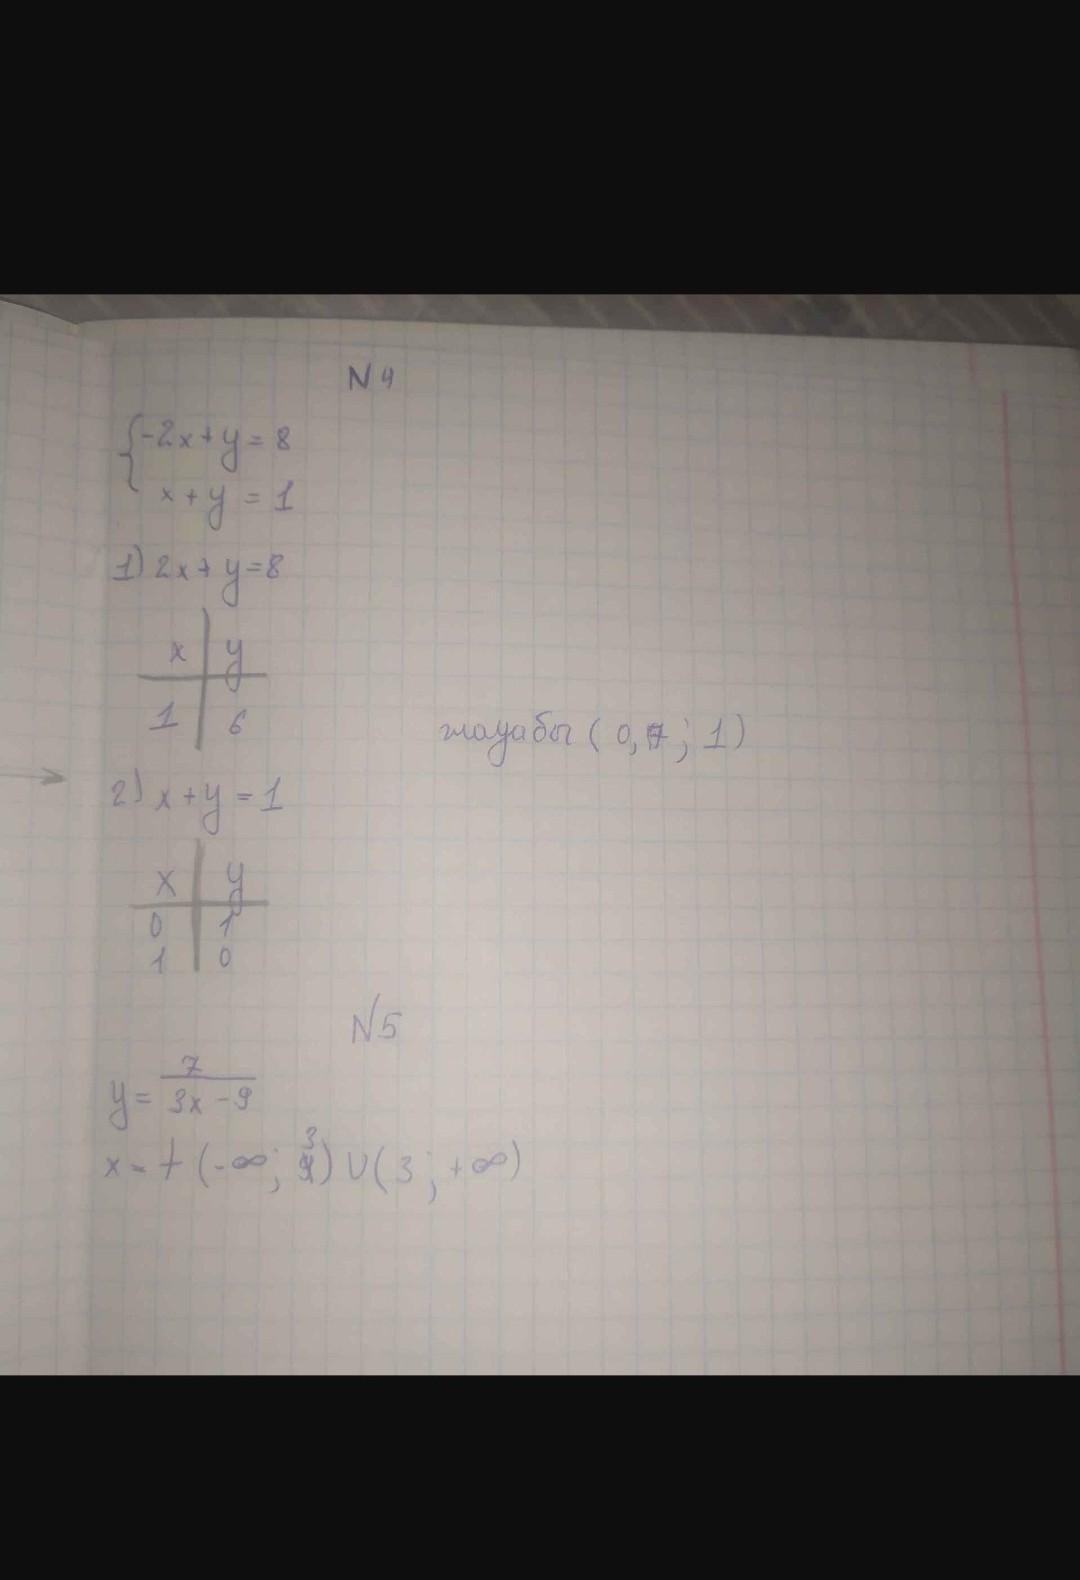 N4
{-2x+y=8
x+y=1
1) 2x+y=8
x | y
1 | 6
жауабы (0,7; 1)
2) x+y=1
x | y
0 | 1
1 | 0
N5
y= 7/(3x-9)
x = (-∞; 3) U (3; +∞)